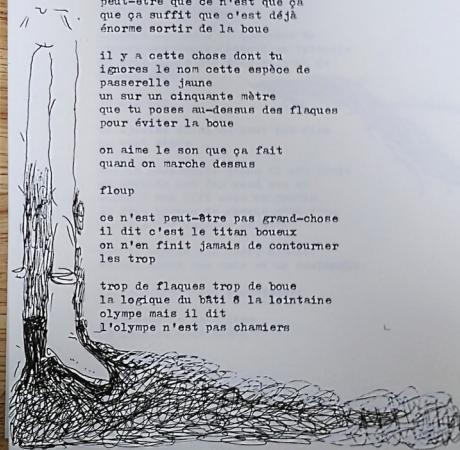 peut-être que ce n'est que ça
que ça suffit que c'est déjà
énorme sortir de la boue
il y a cette chose dont tu
ignores le nom cette espèce de
passerelle jaune
un sur un cinquante mètre
que tu poses au-dessus des flaques
pour éviter la boue
on aime le son que ça fait
quand on marche dessus
floup
ce n'est peut-être pas grand-chose
il dit c'est le titan boueux
on n'en finit jamais de contourner
les trop
trop de flaques trop de boue
la logique du bâti & la lointaine
olympe mais il dit
l'olympe n'est pas chamiers